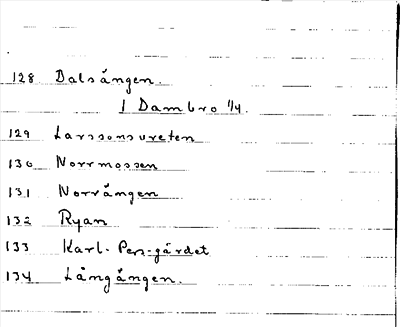 128 Dalsängen.
1 Dambro 1/4.
129 Larssonsvreten
130 Norrmossen
131 Norrängen
132 Ryan
133 Karl-Pers-gärdet
134 Långängen.